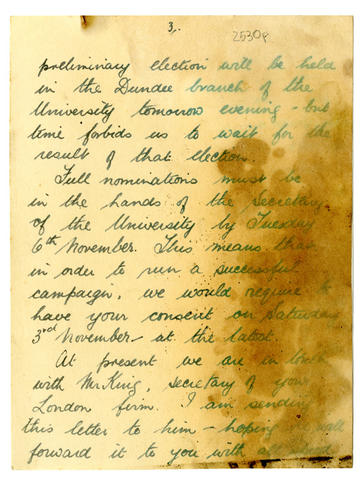 3.
2530p
preliminary election will be held
in the Dundee branch of the
University tomorrow evening - but
time forbids us to wait for the
result of that election.
Full nominations must be
in the hands of the Secretary
of the University by Tuesday
6th November. This means that
in order to run a successful
campaign, we would require to
have your consent on Saturday
3rd November - at the latest.
At present we are in touch
with Mr King, secretary of your
London firm. I am sending
this letter to him - hoping he will
forward it to you with all